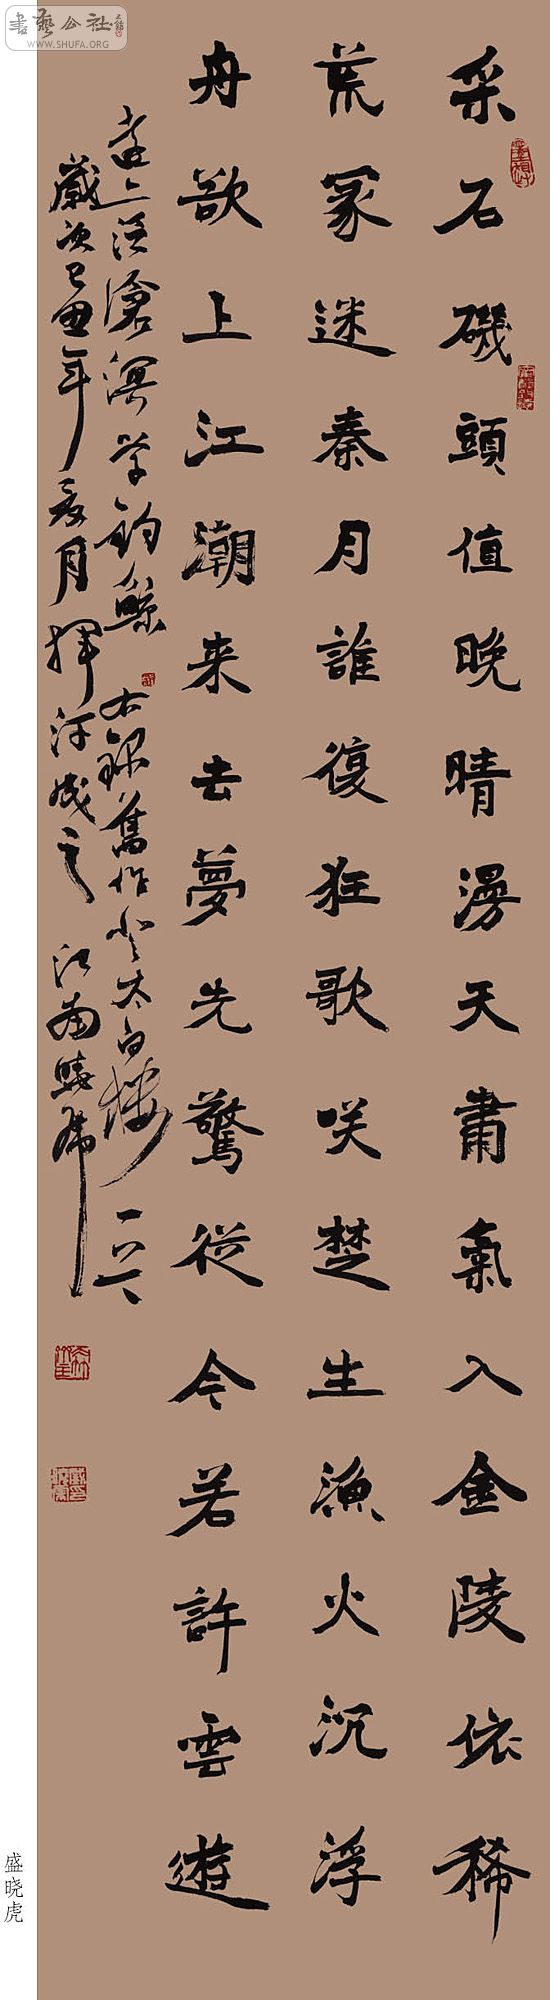 采石磯頭值晚晴漫天肅氣入金陵依稀
荒冢迷秦月誰復狂歌咲楚生漁火沉浮
舟欲上江潮来去夢先驚從今若許雲遊
去三江滄溟学釣鯨 右錄舊作登太白樓一首
歲次己丑年夏月揮汗成之 江南曉虎
盛晓虎
書藝公社
WWW.SHUFA.ORG